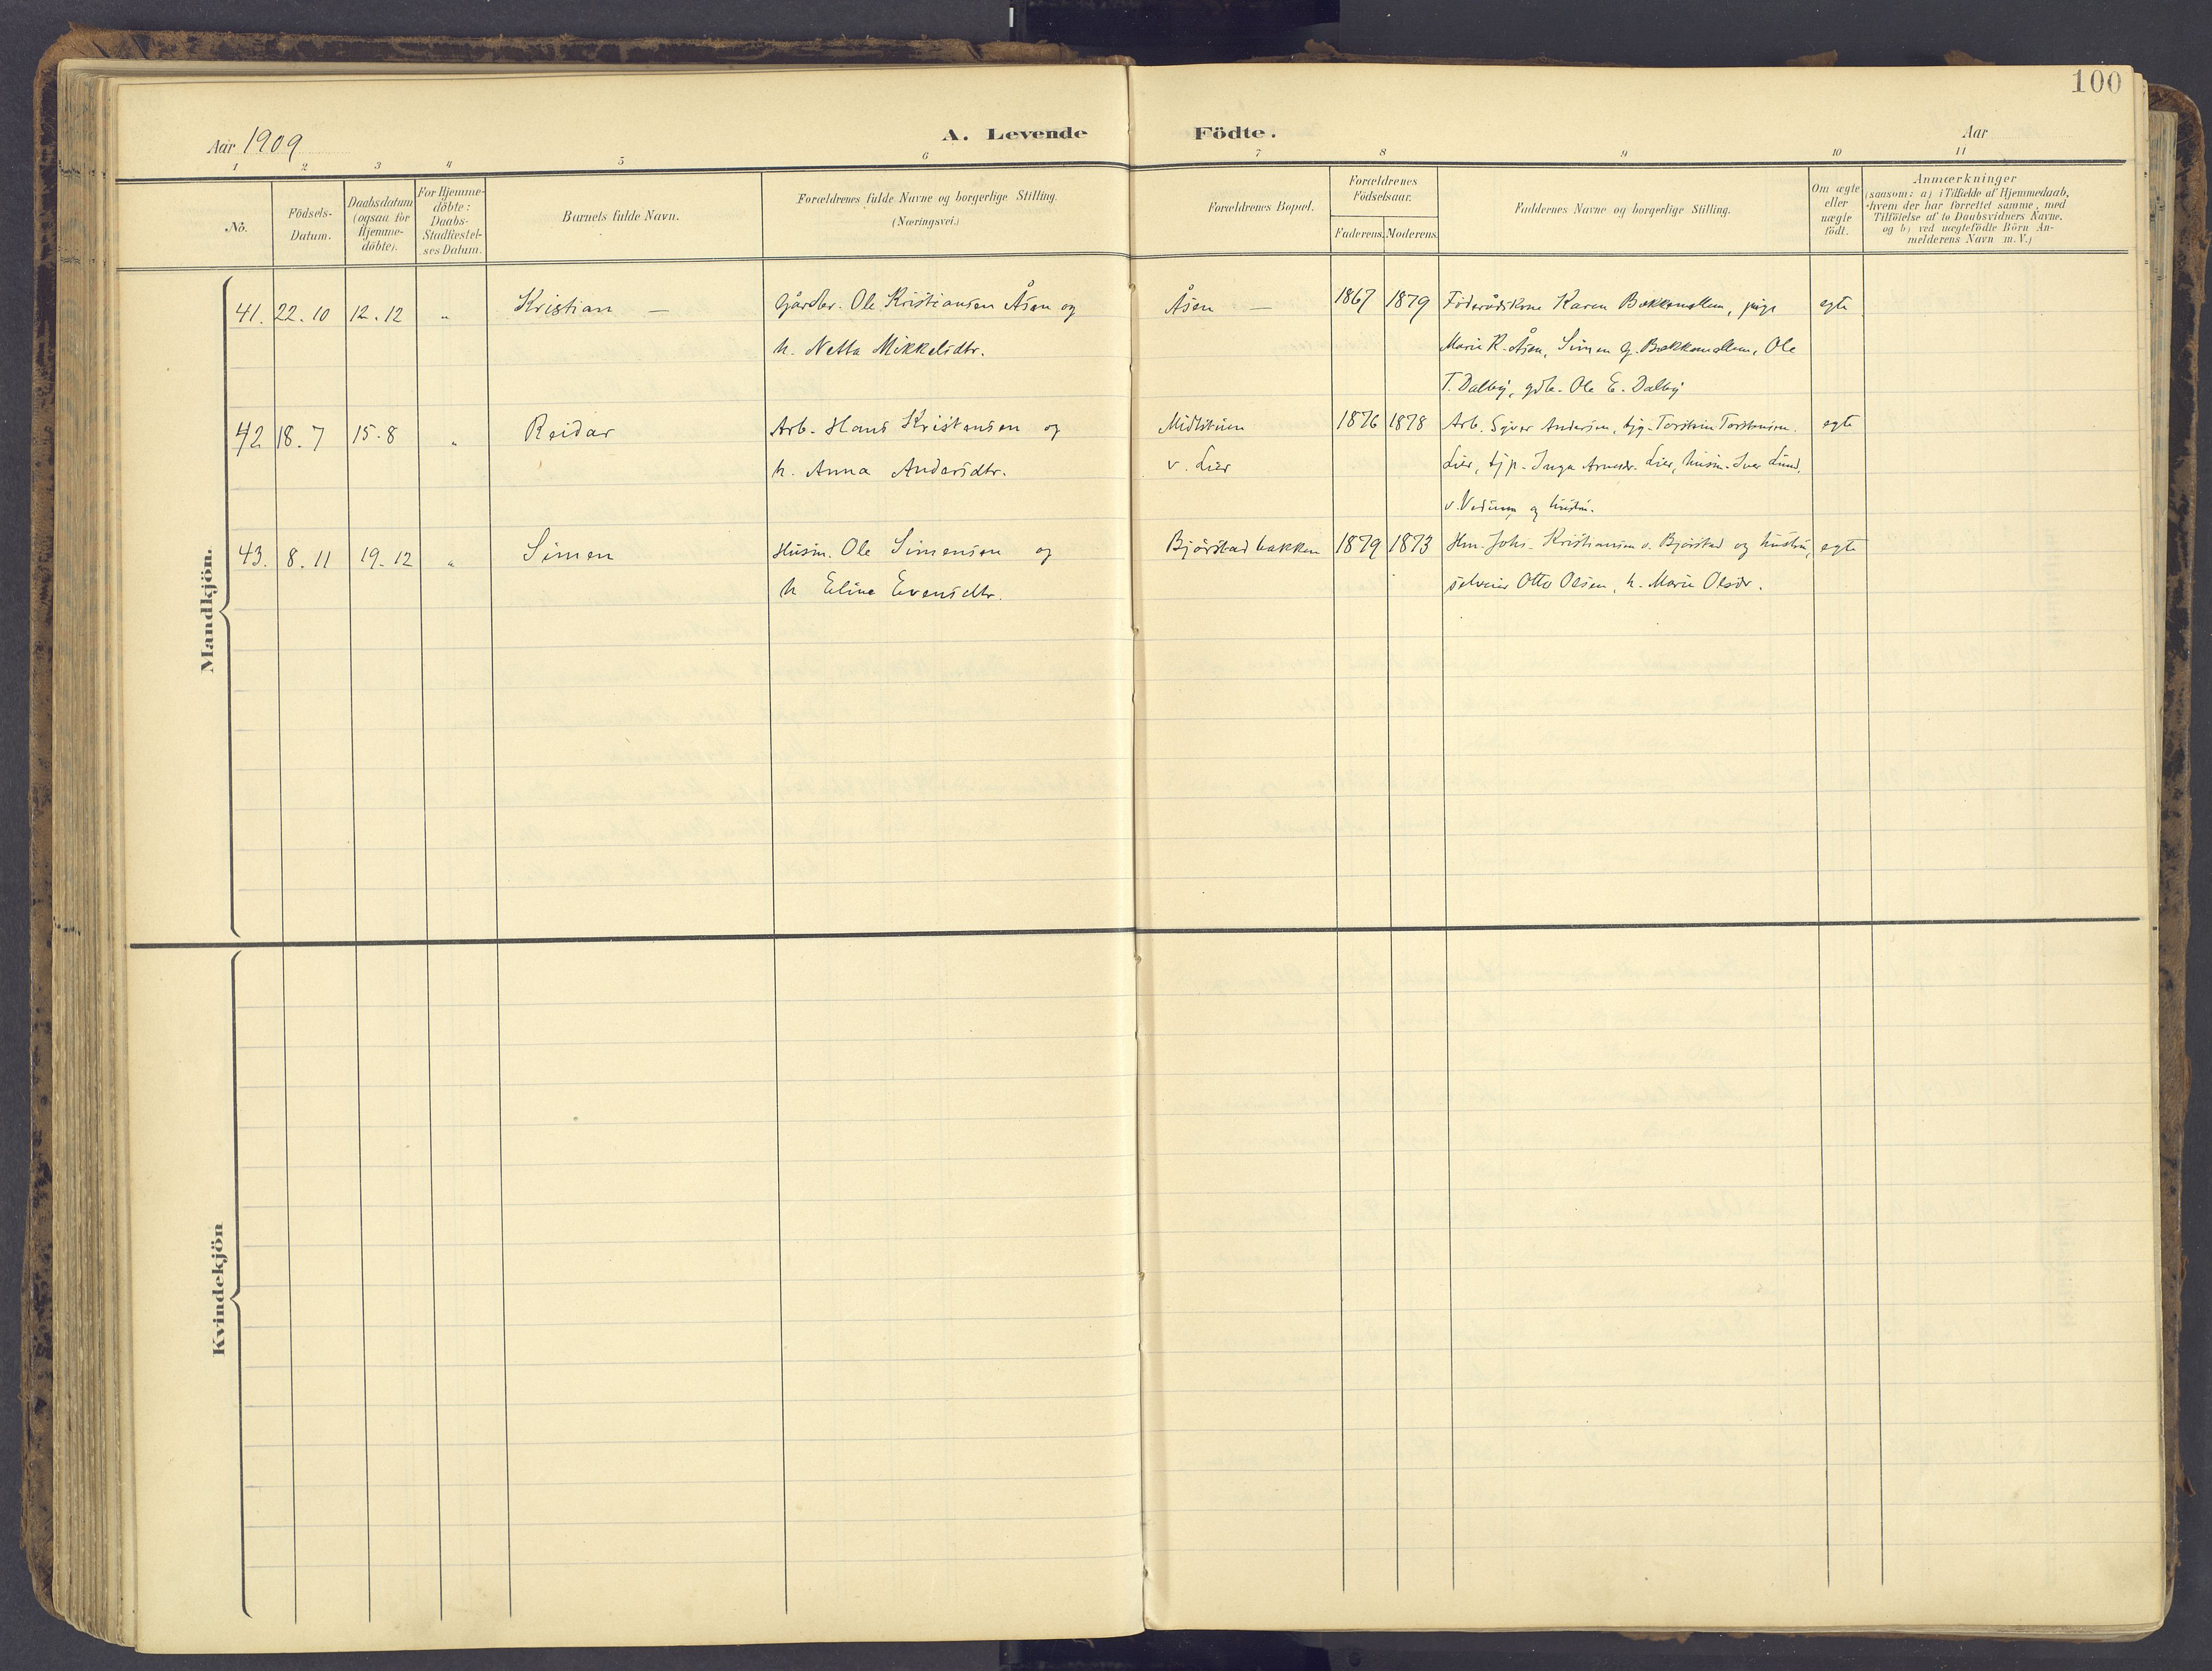 100
Aar 1909
A. Levende Födte.
Aar
1 2 3 4 5 6 7 8 9 10 11
No.
Födsels-Datum.
Daabsdatum (ogsaa for Hjemme-döbte).
For Hjemme-döbte: Daabs-Stadfæstel-ses Datum.
Barnets fulde Navn.
Forældrenes fulde Navne og borgerlige Stilling.
(Næringsvei.)
Forældrenes Bopæl.
Forældrenes Födselsaar.
Faderens. Moderens.
Faddernes Navne og borgerlige Stilling.
Om ægte eller uægte födt.
Anmærkninger
(saasom: a) i Tilfælde af Hjemmedaab,
hvem der har forrettet samme, med
Tilföielse af to Daabsvidners Navne.
og b) ved uægtefödte Börn An-
melderens Navn m. V.)
Mandkjön.
41. 22.10 12.12 „ Kristian — Gårdbr. Ole Kristiansen Åsen og Åsen — 1867 1879 Föderådskone Karen Bakkemellem, pige egte
h. Netta Mikkelsdtr. Marie K. Åsen, Simen G. Bakkemellem, Ole
T. Dalby, gdb. Ole E. Dalby
42 18.7 15.8 „ Reidar Arb. Hans Kristensen og Midtstuen 1876 1878 Arb. Syver Andersen, tjg. Torstein Torstensen. egte
h. Anna Andersdtr. v. Lier Lier, tjp. Inga Arnesdr. Lier, husm. Iver Lund,
v. Vedum og hustru.
43. 8.11 19.12 „ Simen Husm. Ole Simensen og Bjørstadbakken 1879 1873 Hm. Johs. Kristiansen v. Bjørstad og hustru, egte
h Eline Evensdtr. selveier Otto Olsen, h. Marie Olsdr.
Kvindekjön